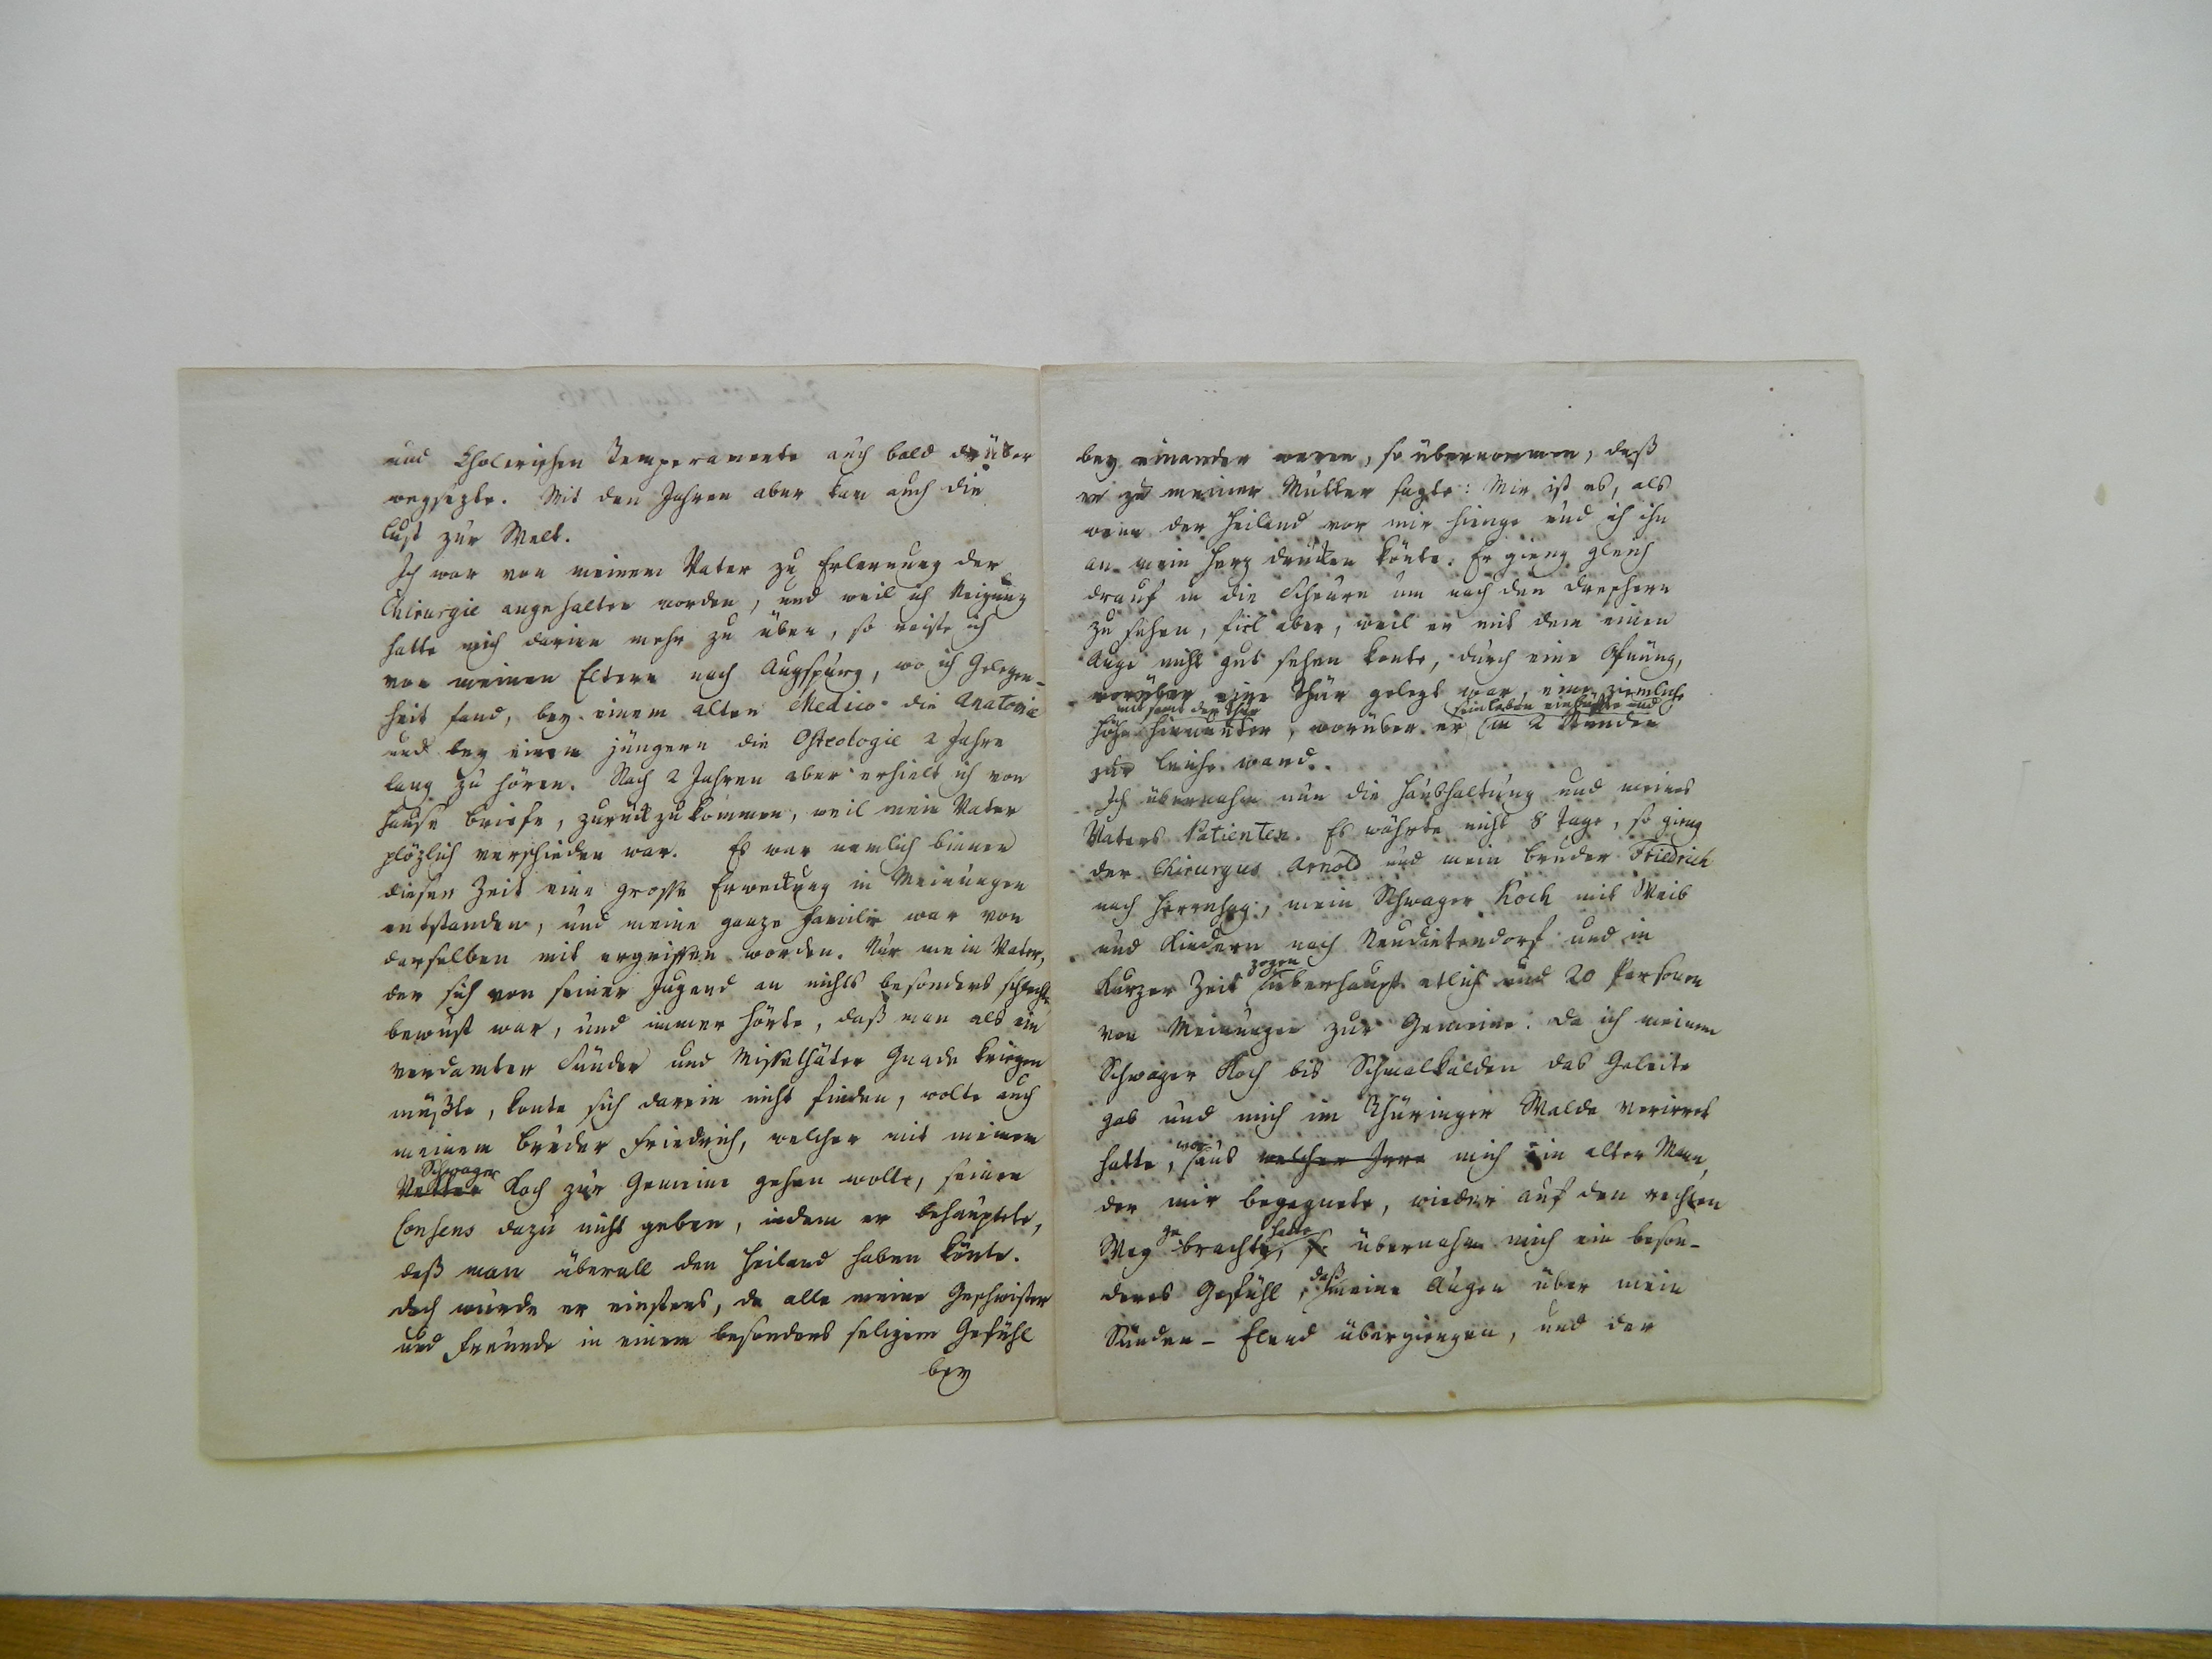 und Cholerischen Temperamente auch bald drüber
wegsezte. Mit den Jahren aber kam auch die
Lust zur Welt.
Ich war von meinem Vater zu Erlernung der
Chirurgie angehalten worden, und weil ich Neigung
hatte mich darinn mehr zu üben, so reiste ich
von meinen Eltern nach Augspurg, wo ich Gelegen-
heit fand, bey einem alten Medico die Anatomie
und bey einem jüngern die Osteologie 2 Jahre
lang zu hören. Nach 2 Jahren aber erhielt ich von
Hause Briefe, zurück zu kommen, weil mein Vater
plözlich verschieden war. Es war nemlich binnen
dieser Zeit eine grosse Erweckung in Meinungen
entstanden, und meine ganze Familie war von
derselben mit ergriffen worden. Nur mein Vater,
der sich von seiner Jugend an nichts besonders schlechts
bewust war, und immer hörte, daß man als ein
verdamter Sünder und Missethäter Gnade kriegen
müßte, konte sich darein nicht finden, wolte auch
meinem Bruder Friedrich, welcher mit meinem
Schwager
Vetter Koch zur Gemeine gehen wolte, seinen
Consens dazu nicht geben, indem er behauptete,
daß man überall den Heiland haben könte.
Doch wurde er einstens, da alle meine Geschwister
und Freunde in einem besonders seligem Gefühl
bey
bey einander waren, so übernommen, daß
er zu meiner Mutter sagte: Mir ist es, als
wenn der Heiland vor mir hienge und ich ihn
an mein Herz drücken könte. Er gieng gleich
drauf in die Scheure um nach den Dreschern
zu sehen, fiel aber, weil er mit dem einen
Auge nicht gut sehen konte, durch eine Ofnung,
worüber eine Thür gelegt war, eine ziemliche
mit samt der Thür sein Leben einbüßte und
Höhe hinunter, worüber er in 2 Stunden
zur Leiche ward.
Ich übernahm nun die Haushaltung und meines
Vaters Patienten. Es währte nicht 8 Tage, so gieng
der Chirurgus Arnold und mein Bruder Friedrich
nach Herrnhag, mein Schwager Koch mit Weib
und Kindern nach Neudietendorf und in
zogen
kurzer Zeit überhaupt etlich und 20 Personen
von Meinungen zur Gemeine. Da ich meinem
Schwager Koch bis Schmalkalden das Geleite
gab und mich im Thüringer Walde verirret
hatte, aus welcher Irre mich ein alter Man,
der mir begegnete, wieder auf den rechten
ge hatte
Weg brachte, so übernahm mich ein beson-
daß
deres Gefühl, meine Augen über mein
Sünden-Elend übergiengen, und der